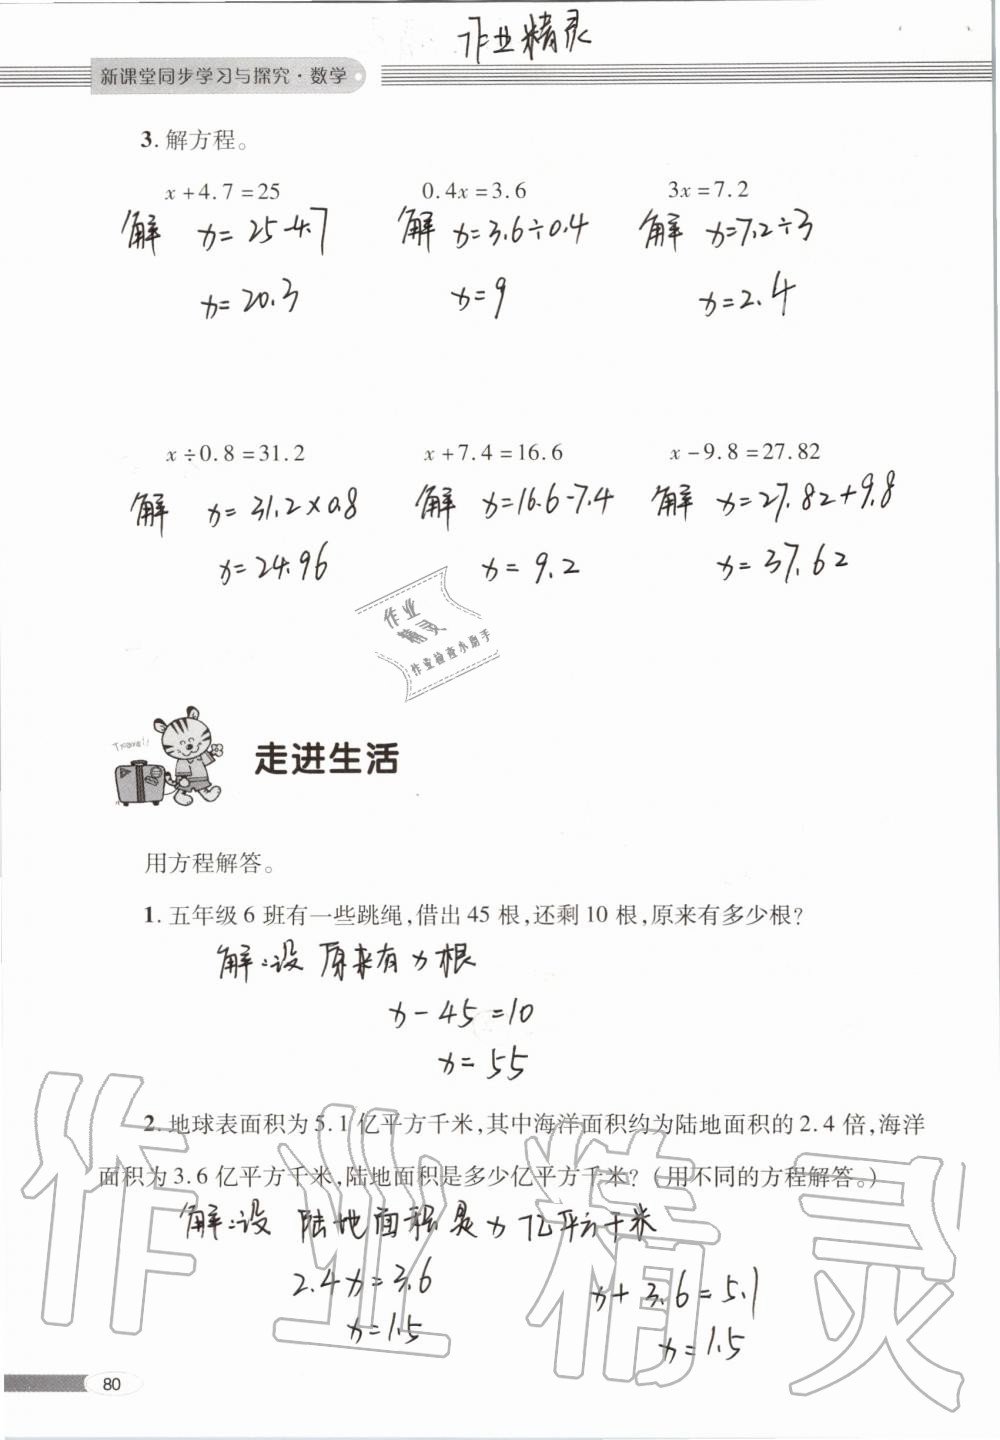 作业精灵
新课堂同步学习与探究·数学
3. 解方程。
x+4.7=25 0.4x=3.6 3x=7.2
解 x=25-4.7 解 x=3.6÷0.4 解 x=7.2÷3
x=20.3 x=9 x=2.4
x÷0.8=31.2 x+7.4=16.6 x-9.8=27.82
解 x=31.2×0.8 解 x=16.6-7.4 解 x=27.82+9.8
x=24.96 x=9.2 x=37.62
作业
精灵
作业检查小助手
Travel!
走进生活
用方程解答。
1. 五年级6班有一些跳绳,借出45根,还剩10根,原来有多少根?
解:设原来有x根
x-45=10
x=55
2. 地球表面积为5.1亿平方千米,其中海洋面积约为陆地面积的2.4倍,海洋
面积为3.6亿平方千米,陆地面积是多少亿平方千米?(用不同的方程解答。)
解:设 陆地面积是x亿平方千米
2.4x=3.6 x+3.6=5.1
x=1.5 x=1.5
作业精灵
80